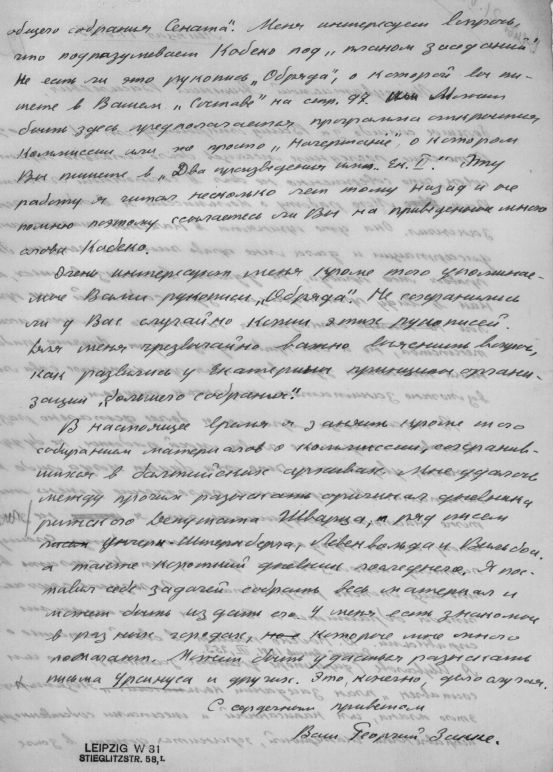 общего собрания Сената". Меня интересует вопрос,
что подразумевает Кобеко под „планом заседаний".
Не есть ли это рукопись „Обряда", о которой вы пи-
шете в Вашем „Составе" на стр. 97. Может
быть здесь предполагается программа открытия
Комиссии или же просто „Начертание", о котором
Вы пишете в „Два произведения имп. Ек. II." Эту
работу я читал несколько лет тому назад и не
помню поэтому ссылаетесь ли Вы на приведенные мною
слова Кобеко.
Очень интересуют меня кроме того упоминае-
мые Вами рукописи „Обряда". Не сохранились
ли у Вас случайно копии этих рукописей.
Для меня чрезвычайно важно выяснить вопрос,
как развились у Екатерины принципы органи-
зации „большего собрания".
В настоящее время я занят кроме того
собиранием материалов о комиссии, сохранив-
шихся в балтийских архивах. Мне удалось
между прочим разыскать оригинал дневника
рижского депутата Шварца, ряд писем
Унгерн-Штернберга, Левенвольда и Вильбоа,
а также короткий дневник последнего. Я пос-
тавил себе задачей собрать весь материал и
может быть издать его. У меня есть знакомые
в разных городах, которые мне много
помогают. Может быть удастся разыскать
письма Урсинуса и других. Это, конечно, дело случая.
С сердечным приветом
Ваш Георгий Закке.
LEIPZIG W 31
STIEGLITZSTR. 58, I.